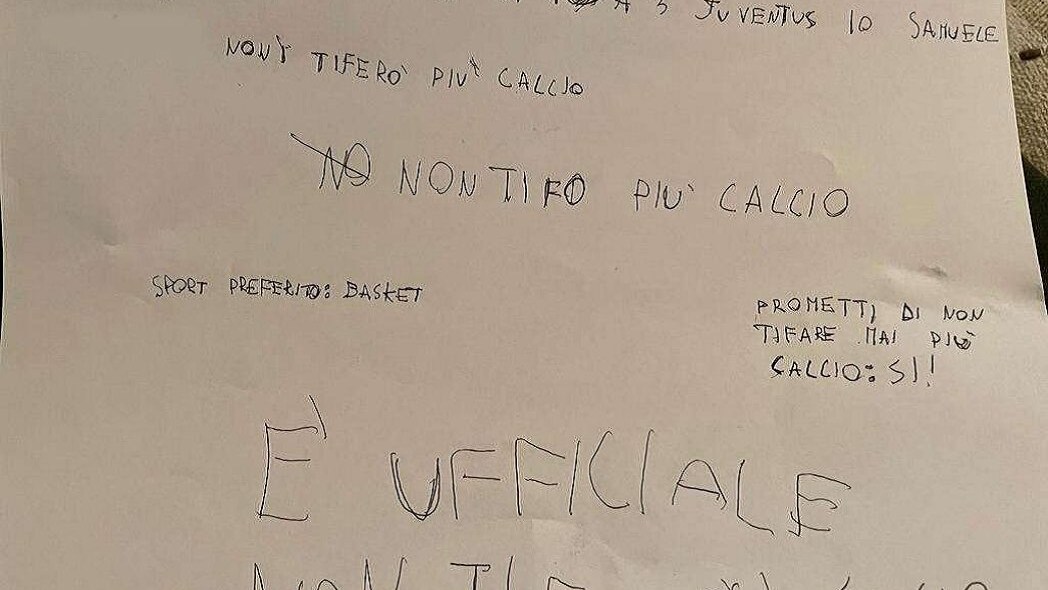 A 3 JUVENTUS IO SAMUELE
NON TIFERO' PIU' CALCIO
NO NON TIFO PIU' CALCIO
SPORT PREFERITO: BASKET
PROMETTI DI NON
TIFARE MAI PIÙ
CALCIO: SI!
E' UFFICIALE
NON